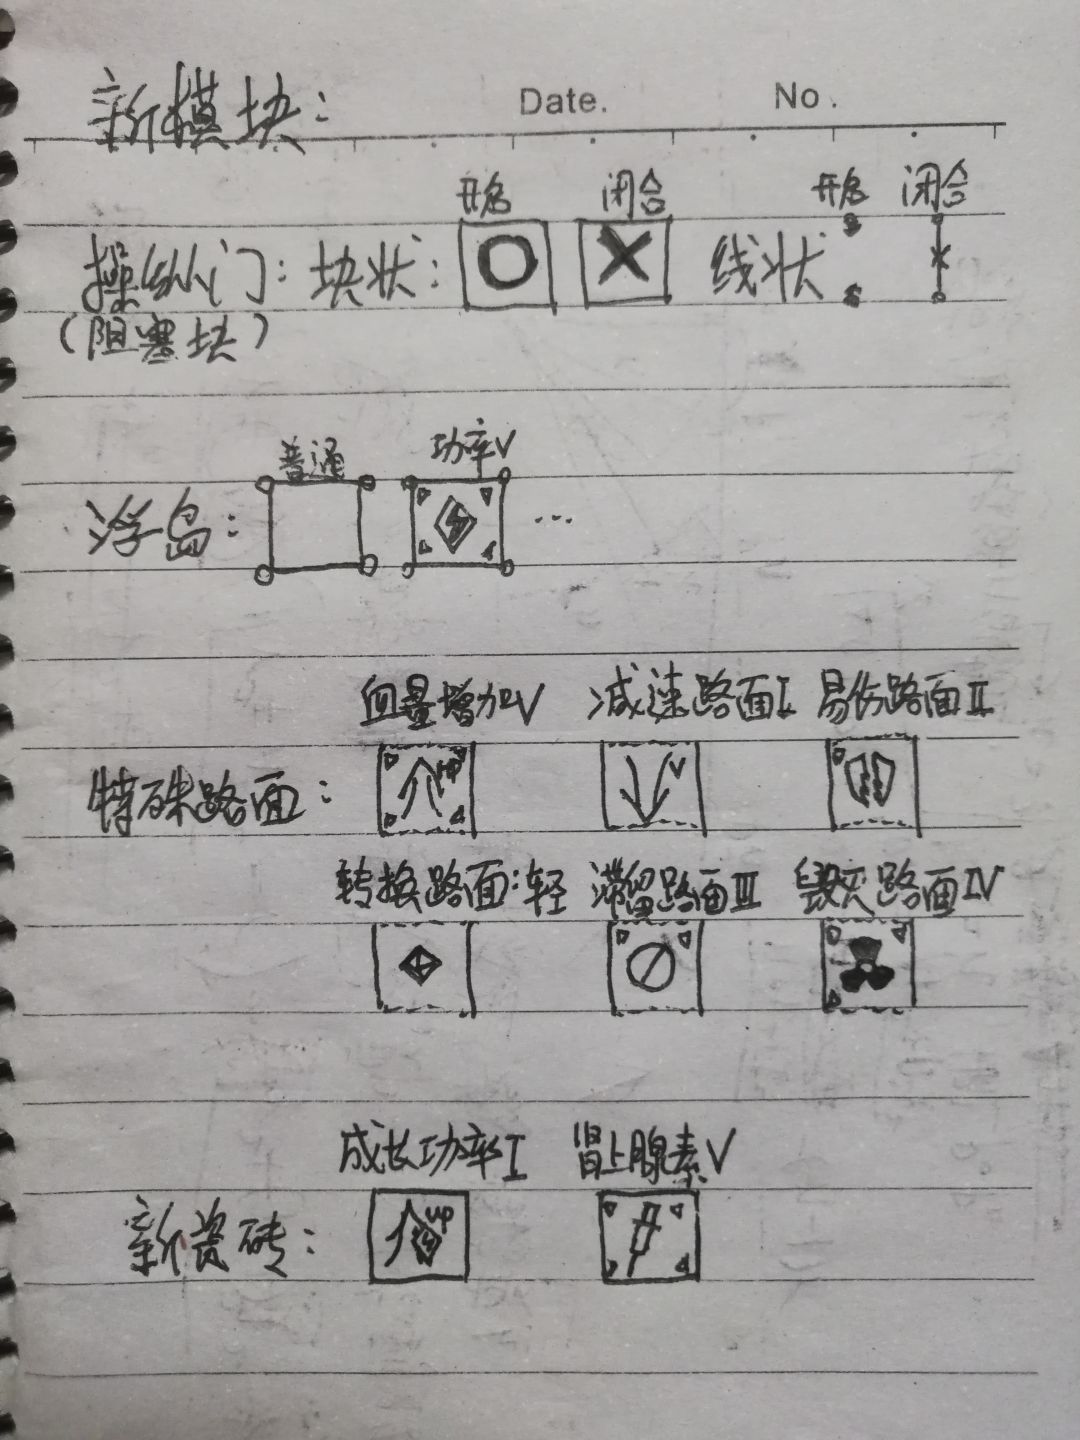 新模块:
Date. No.
开启 闭合 开启 闭合
操纵门: 块状: 线状
(阻塞块)
普通 功率V
浮岛: ...
血量增加V 减速路面I 易伤路面II
HP
特殊路面:
转换路面:轻 滞留路面III 毁灭路面IV
成长功率I 肾上腺素V
up
新瓷砖: